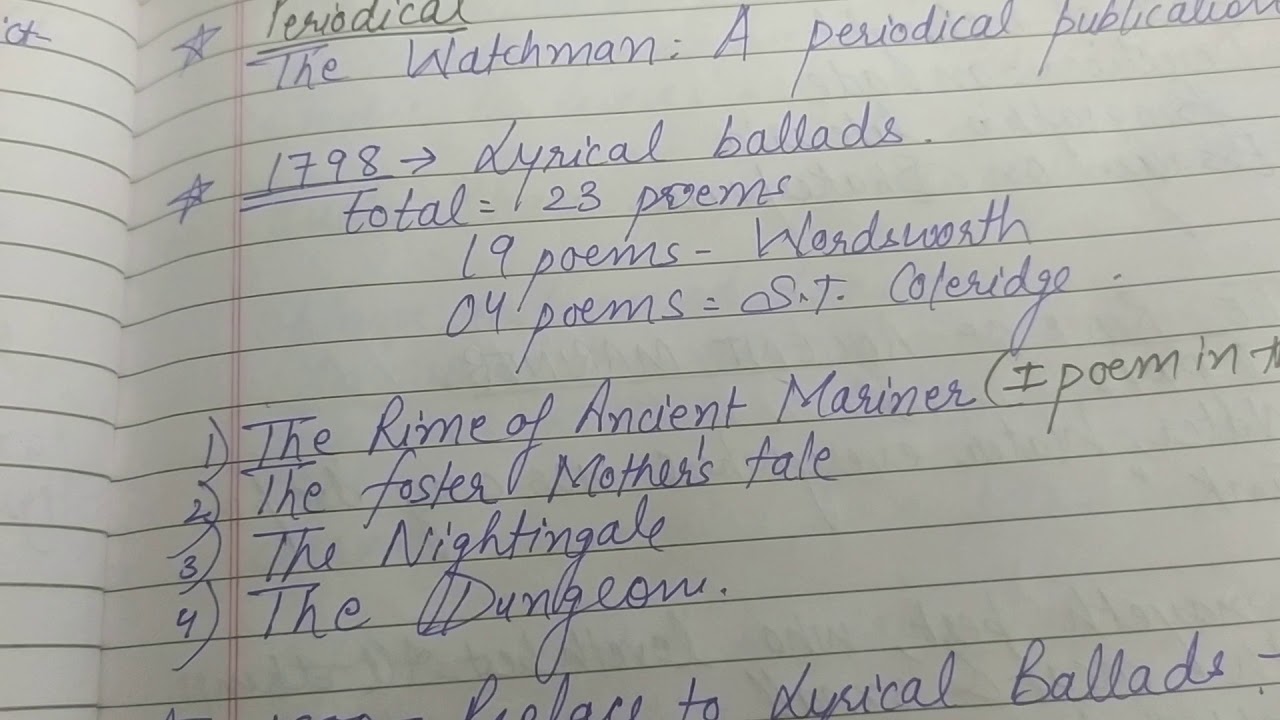 ict
Periodical
☆ The Watchman: A periodical publication
☆ 1798 → Lyrical ballads.
total = 23 poems
19 poems - Wordsworth
04 poems = S.T. Coleridge.
1) The Rime of Ancient Mariner (I poem in
2) The foster Mother's tale
3) The Nightingale
4) The Dungeon.
Preface to Lyrical Ballads -